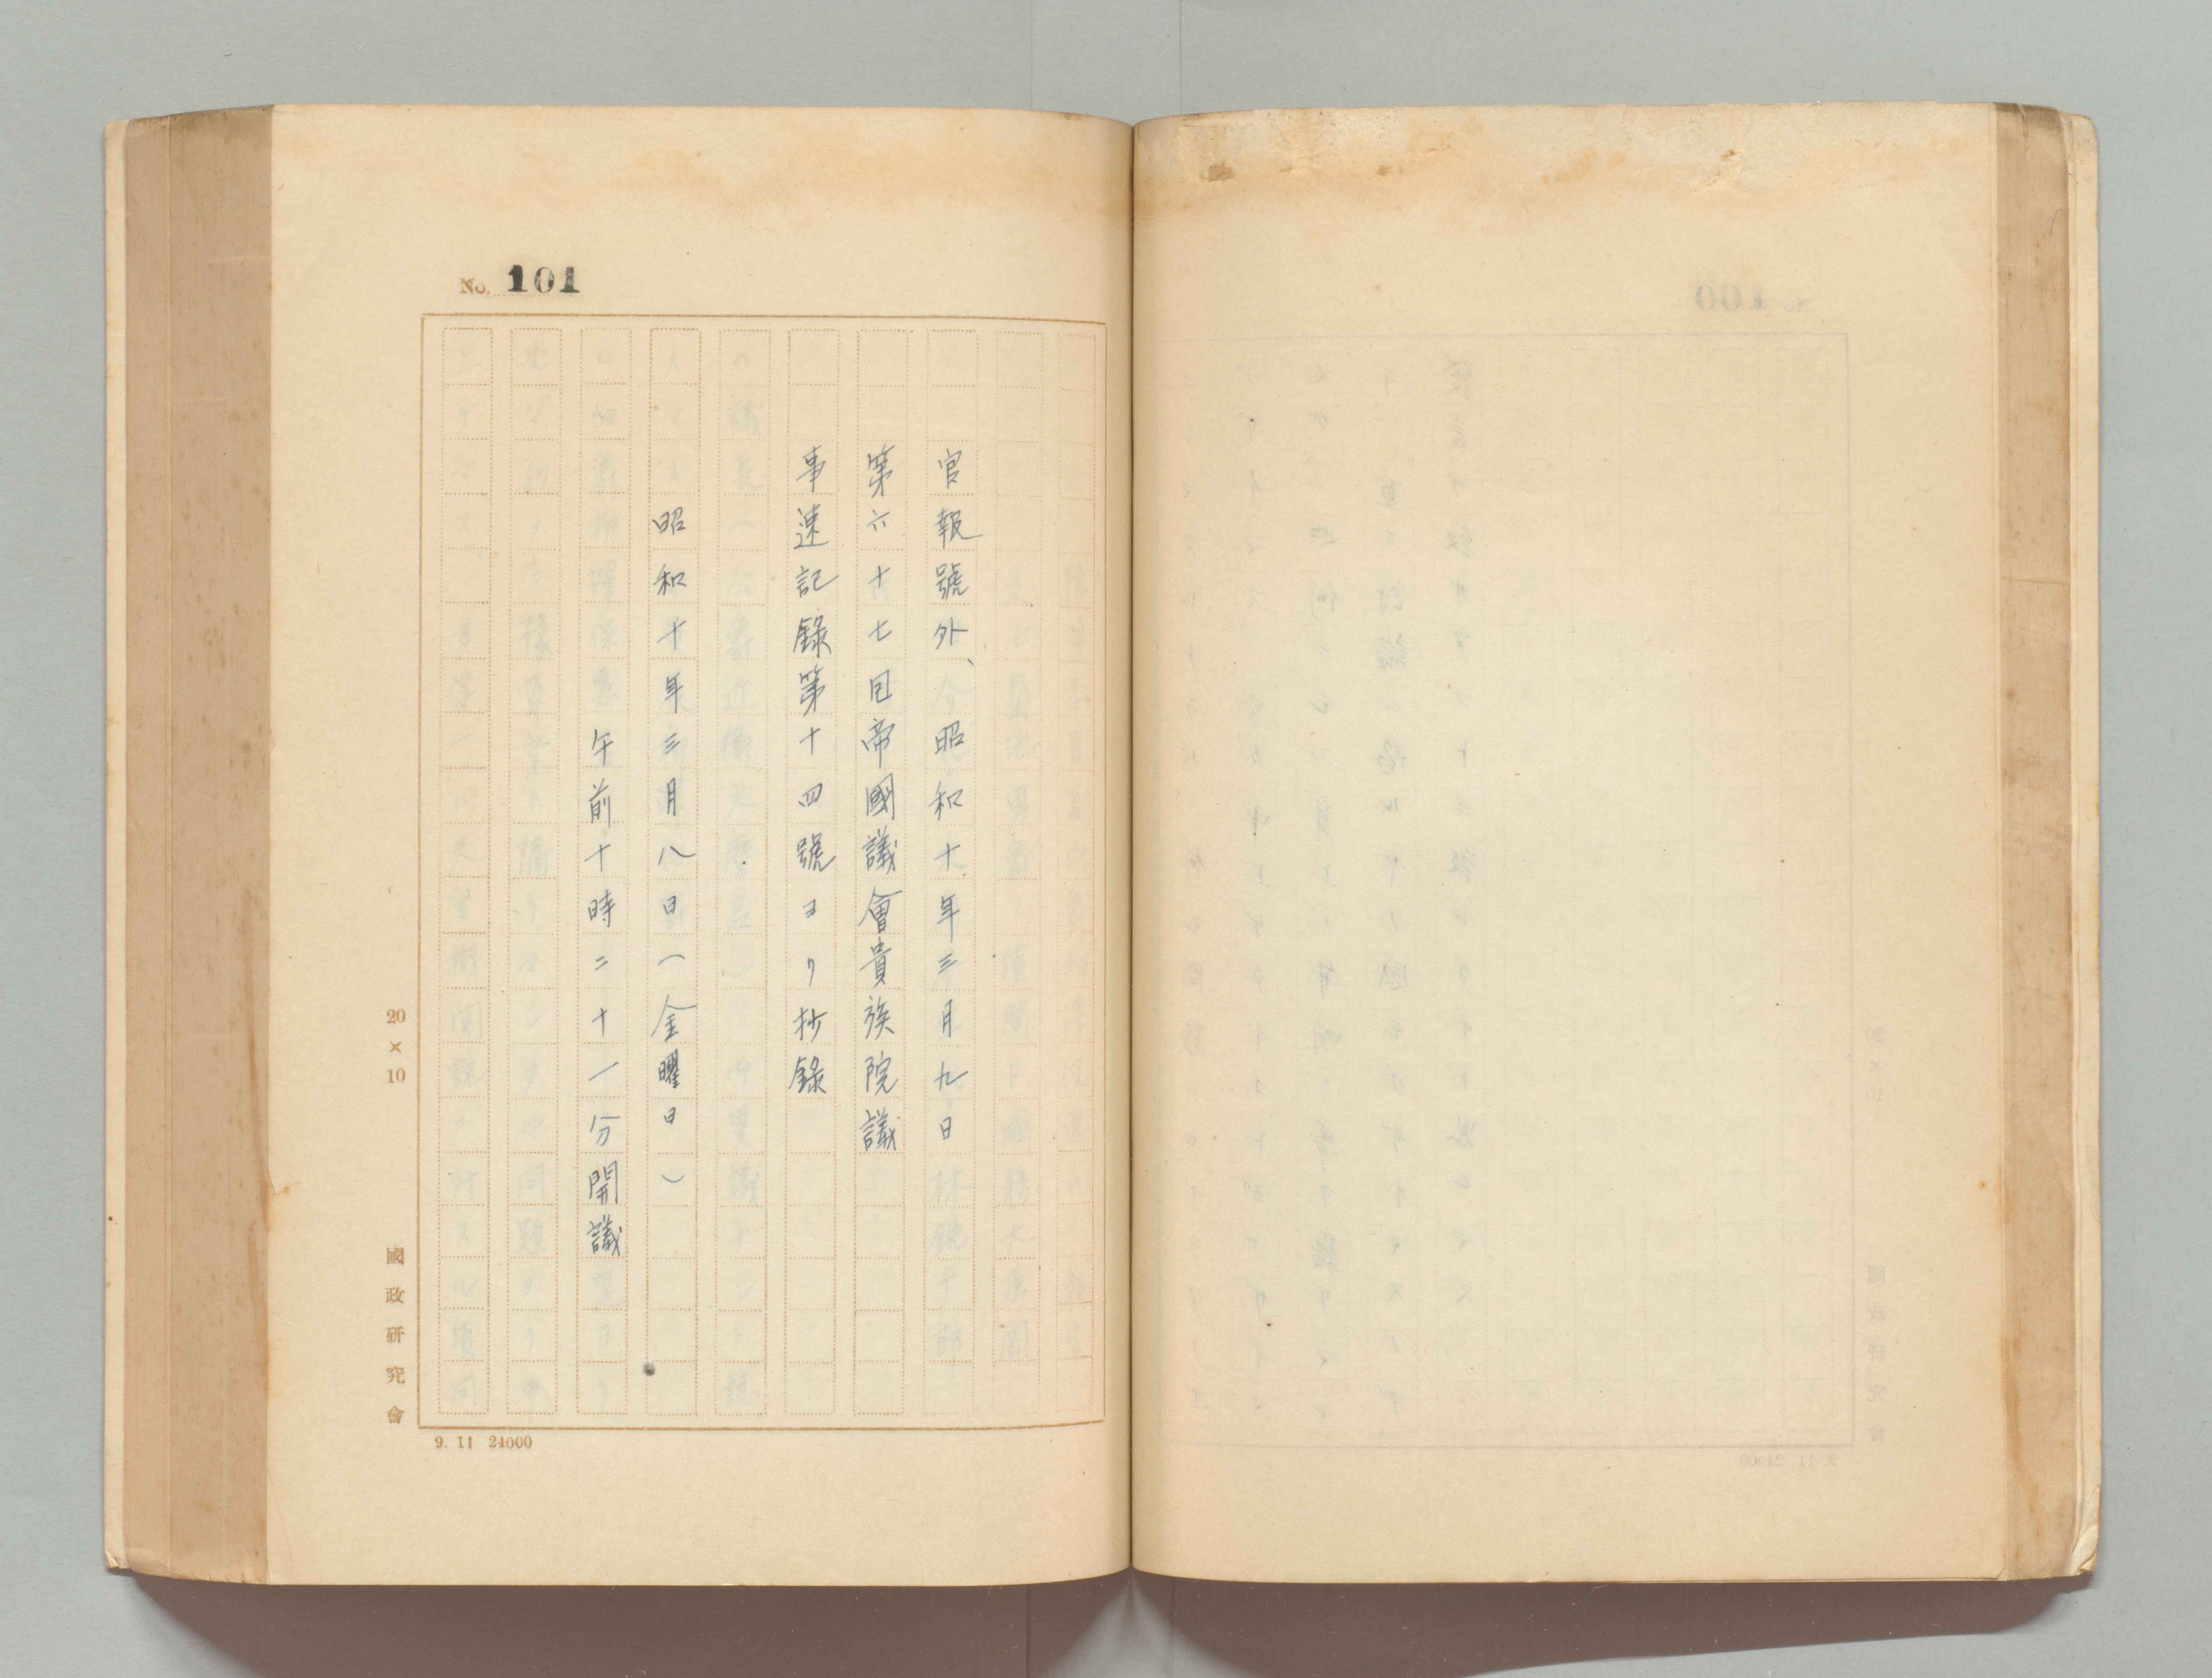 No. 101
官報號外、昭和十年三月九日
第六十七回帝國議會貴族院議
事速記録第十四號ヨリ抄錄
昭和十年三月八日(金曜日)
午前十時二十一分開議
20×10
國政研究會
9. 11 24000